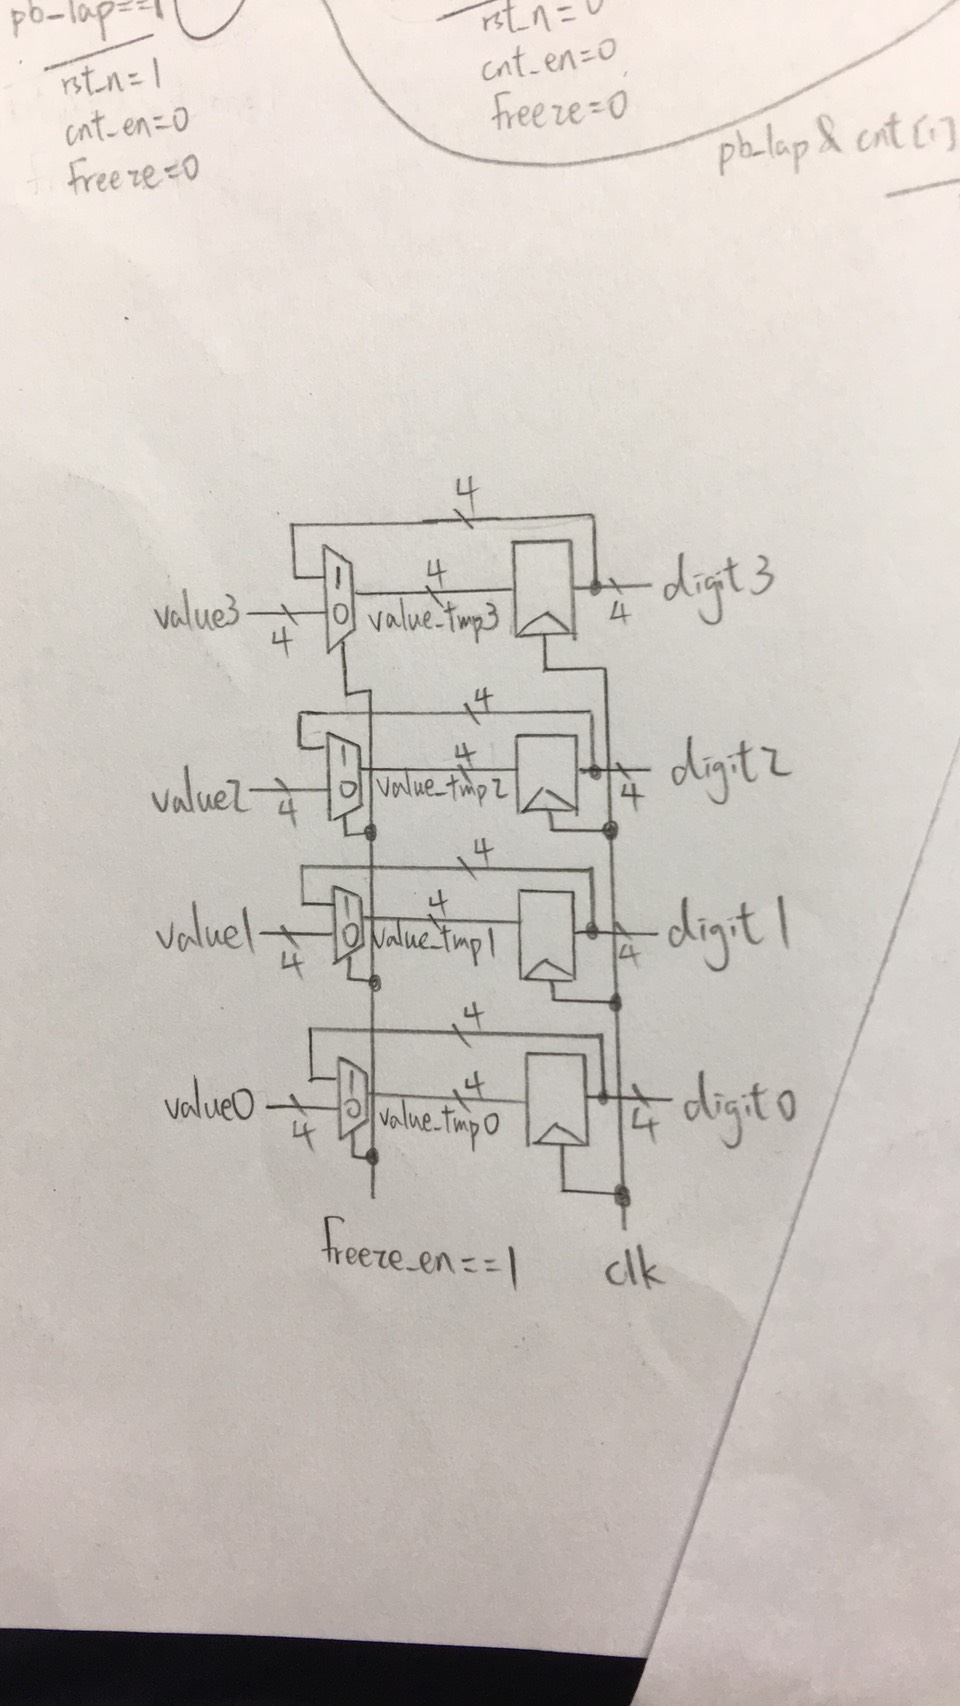 pb-lap==1
rst_n=1
cnt_en=0
freeze=0
rst_n=0
cnt_en=0
freeze=0
pb_lap & cnt[1]
4
1
0
4
value_tmp3
value3
4
4
digit3
4
1
0
4
value_tmp2
value2
4
4
digit2
4
1
0
4
value_tmp1
value1
4
4
digit1
4
1
0
4
value_tmp0
value0
4
4
digit0
freeze_en==1
clk